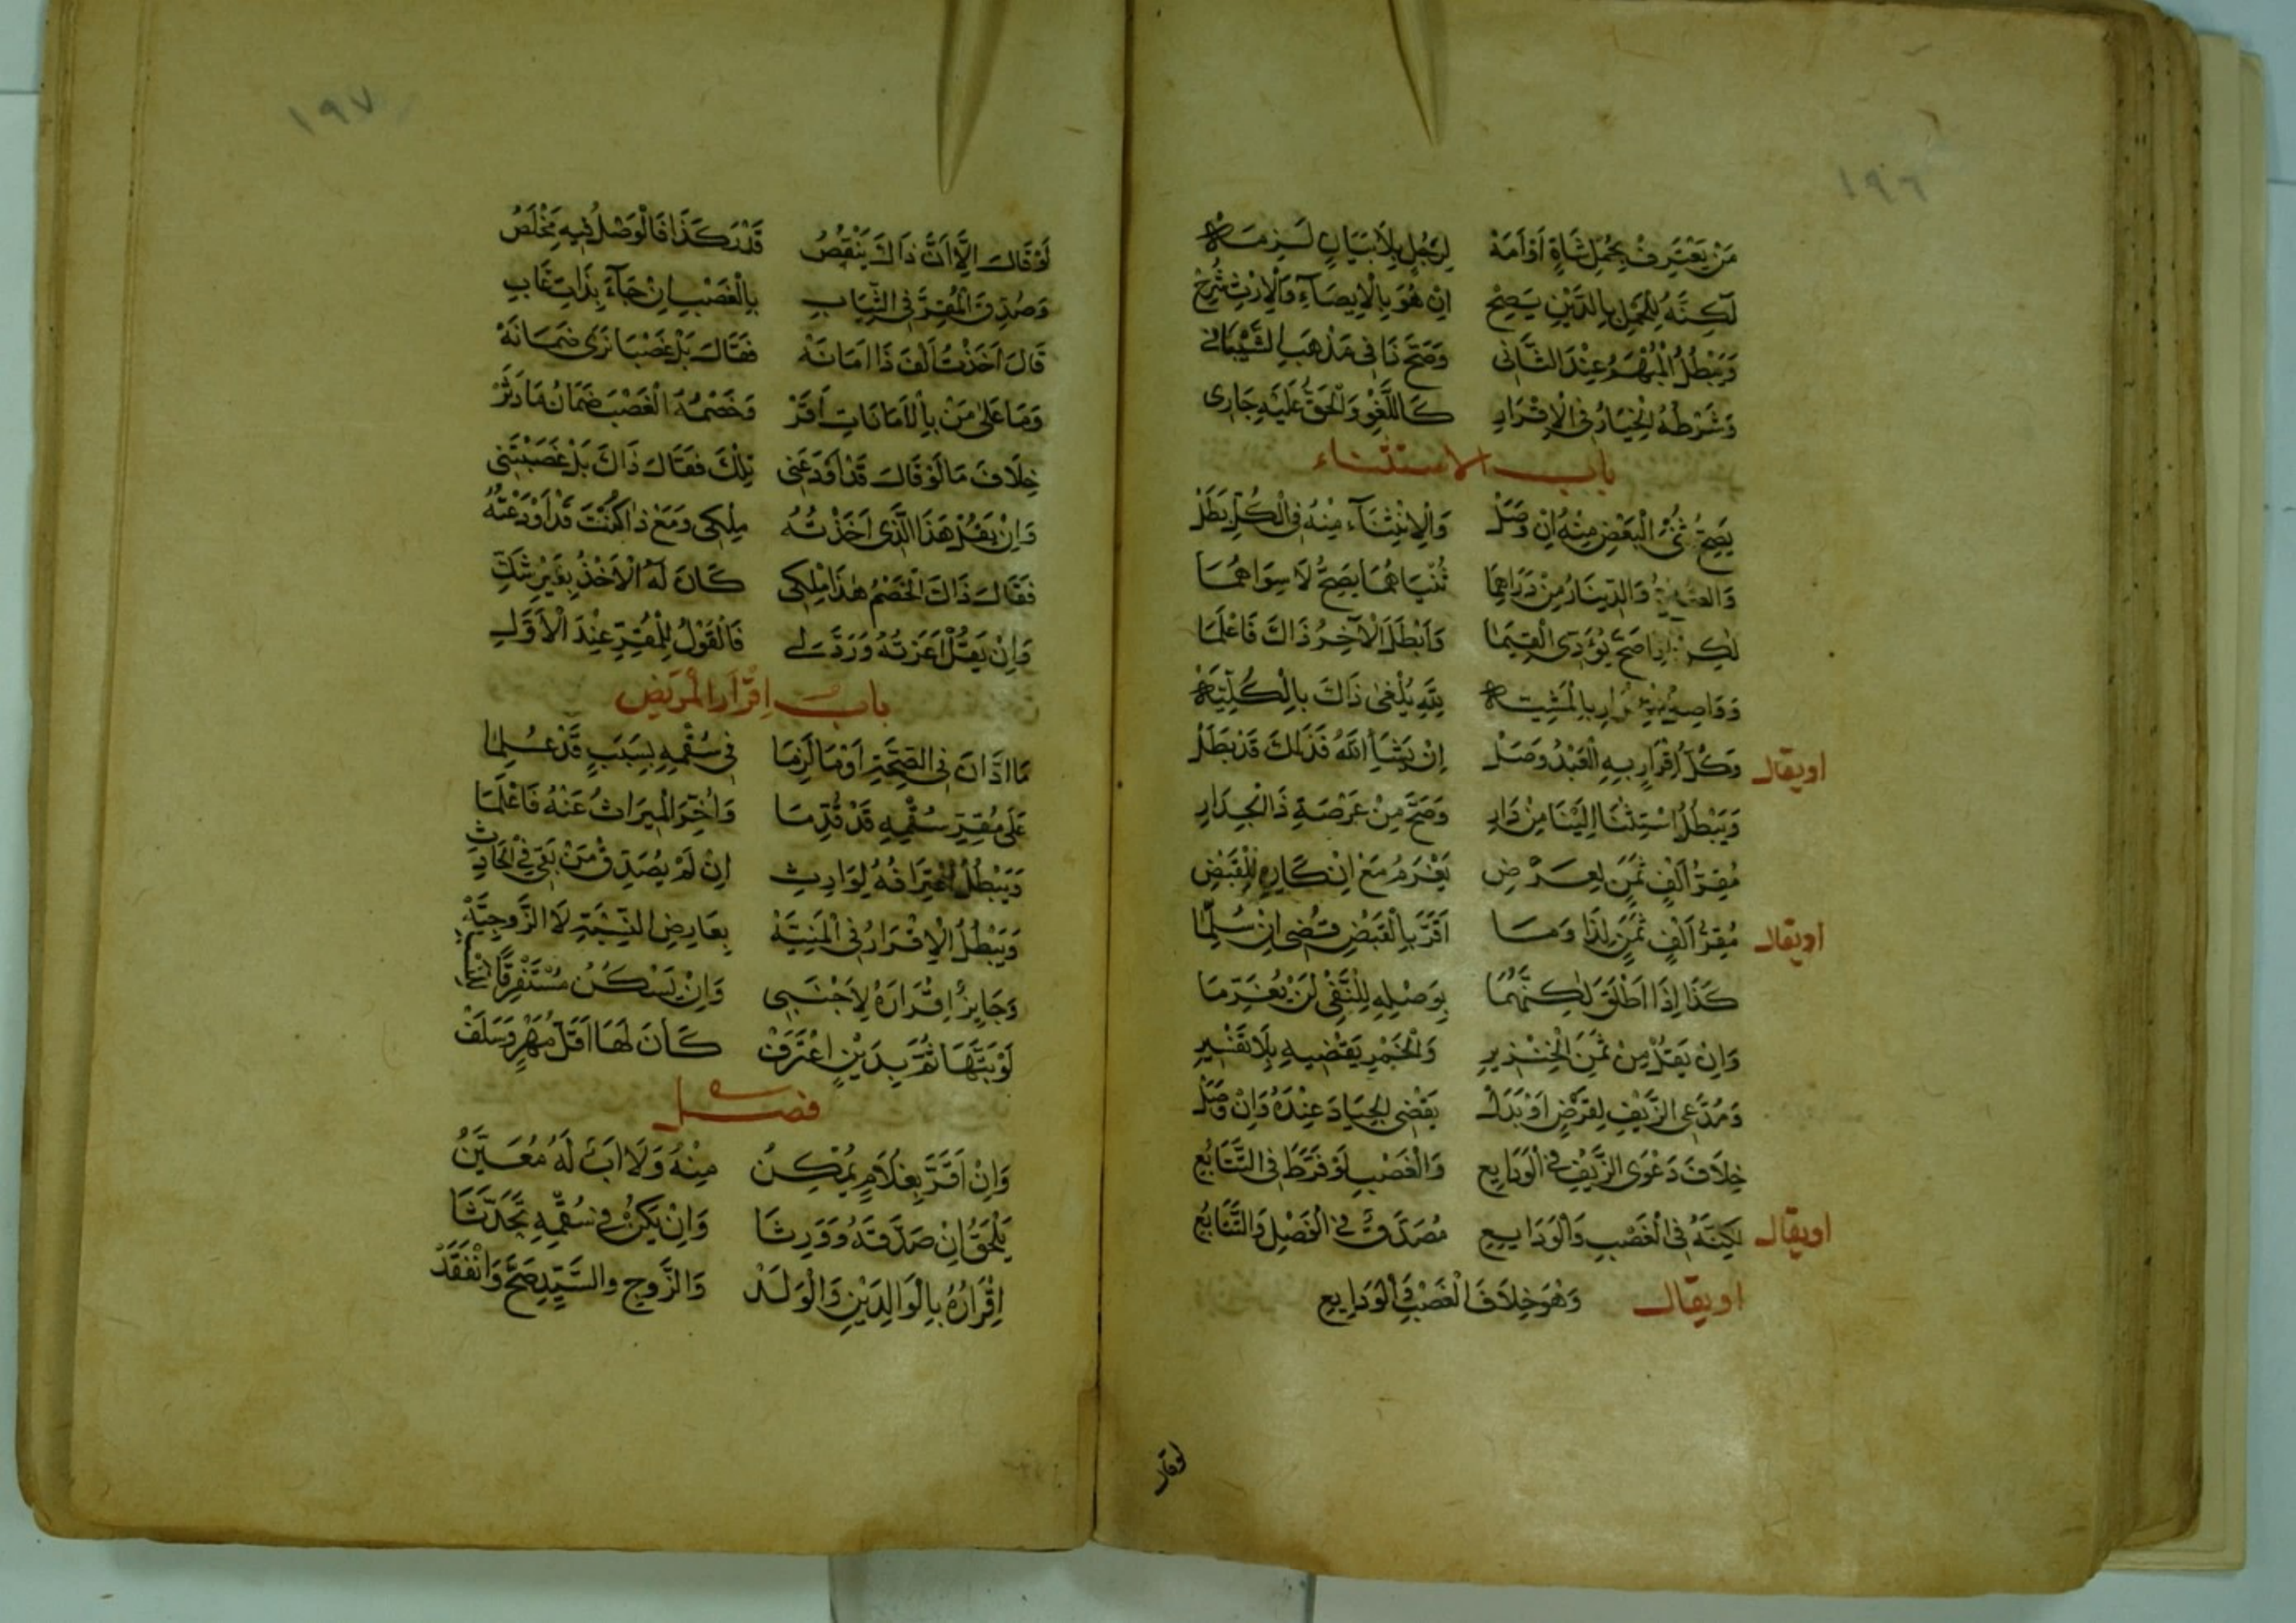 ١٩٦
مَنْ يَعْتَرِفْ بِحَمْلِ شَاةٍ أَوْ أَمَةْ لِرَجُلٍ بِلَا بَيَانٍ لَزِمَهْ
لَكِنَّهُ لِلْحَمْلِ بِالدَّيْنِ يَصِحْ اِنْ هُوَ بِالْاِيصَآءِ وَالْاِرْثِ شُرِحْ
وَيَبْطُلُ الْمُبْهَمُ عِنْدَ الثَّانِى وَصَحَّ ذَا فِى مَذْهَبِ الشَّيْبَانِى
وَشَرْطُهُ الْخِيَارُ فِى الْاِقْرَارِ كَاللَّغْوِ وَالْحَقُّ عَلَيْهِ جَارِى
باب الاستثناء
يَصِحُّ ثُنْىُ الْبَعْضِ مِنْهُ اِنْ وَصَلْ وَالْاِنْثِنَآءُ مِنْهُ فِى الْكُلِّ بَطَلْ
وَالدِّينَارُ مِنْ دَرَاهِمَا ثُنْيَاهُمَا يَصِحُّ لَا سِوَاهُمَا
لَكِنْ اِذَا صَحَّ يُؤَدِّى الْقِيَمَا وَاَبْطَلَ الْآخِرُ ذَاكَ فَاعْلَمَا
بِالْمَشِيَّهْ لِلّٰهِ يُلْغَى ذَاكَ بِالْكُلِّيَّهْ
اويقال وَكُلُّ اِقْرَارٍ بِهِ الْعَبْدُ وَصَلْ اِنْ يَشَأِ اللّٰهُ فَذٰلِكَ قَدْ بَطَلْ
وَيَبْطُلُ اسْتِثْنَا الْبِنَا مِنْ دَارِ وَصَحَّ مِنْ عَرْصَةِ ذَا الْجِدَارِ
مُقِرُّ اَلْفٍ ثَمَنٍ لِعَرْضِ يَغْرَمُ مَعْ اِنْكَارِهِ لِلْقَبْضِ
اويقال مُقِرُّ اَلْفٍ ثَمَنٍ لِذَا وَمَا اَقَرَّ بِالْقَبْضِ قَضَى اِنْ سُلِّمَا
كَذَا اِذَا اَطْلَقَ لٰكِنَّهُمَا بِوَصْلِهِ لِلنَّفْىِ لَنْ يُغَرِّمَا
وَاِنْ يَقُلْ مِنْ ثَمَنِ الْخِنْزِيرِ وَالْخَمْرِ يَقْضِيهِ بِلَا تَفْسِيرِ
وَمُدَّعِى الزَّيْفِ لِقَرْضٍ اَوْ بَدَلْ يَقْضِى الْجِيَادَ عِنْدَهُ وَاِنْ وَصَلْ
خِلَافَ دَعْوَى الزَّيْفِ فِى الْوَدَايِعِ وَالْغَصْبِ لَوْ فَرَّطَ فِى التَّتَابُعِ
اويقال لَكِنَّهُ فِى الْغَصْبِ وَالْوَدَايِعِ مُصَدَّقٌ فِى الْفَصْلِ وَالتَّتَابُعِ
اويقال وَهُوَ خِلَافَ الْغَصْبِ فِى الْوَدَايِعِ
لوقال
١٩٧
لَوْ قَالَ اِلَّا اَنَّ ذَاكَ يَنْقُصُ قَدْرَ كَذَا فَالْوَصْلُ فِيهِ مَخْلَصُ
وَصُدِّقَ الْمُقِرُّ فِى الثِّيَابِ بِالْغَصْبِ اِنْ جَآءَ بِذَاتِ عَابِ
قَالَ اَخَذْتُ اَلْفَ ذَا اَمَانَهْ فَقَالَ بَلْ غَصْبًا نَرَى ضَمَانَهْ
وَمَا عَلَى مَنْ بِالْاَمَانَاتِ اَقَرّْ وَخَصْمُهُ الْغَصْبَ ضَمَانُ مَا دَثَرْ
خِلَافَ مَا لَوْ قَالَ قَدْ اَوْدَعَنِى تِلْكَ فَقَالَ ذَاكَ بَلْ غَصَبْتَنِى
وَاِنْ يَقُلْ هَذَا الَّذِى اَخَذْتُهُ مِلْكِى وَمَعْ ذَا كُنْتَ قَدْ اَوْدَعْتَهُ
فَقَالَ ذَاكَ الْخَصْمُ هٰذَا مِلْكِى كَانَ لَهُ الْاَخْذُ بِغَيْرِ شَكِّ
وَاِنْ يَقُلْ اَعَرْتُهُ وَرَدَّ لِى فَالْقَوْلُ لِلْمُقِرِّ عِنْدَ الْاَوَّلِ
باب اِقْرَار الْمَرِيض
مَا ادَّانَ فِى الصِّحَّةِ اَوْ مَا لَزِمَا فِى سُقْمِهِ بِسَبَبٍ قَدْ عُلِمَا
عَلَى مُقَرِّ سُقْمِهِ قَدْ قُدِّمَا وَاُخِّرَ الْمِيرَاثُ عَنْهُ فَاعْلَمَا
وَيَبْطُلُ اعْتِرَافُهُ لِوَارِثِ اِنْ لَمْ يُصَدِّقْ مَنْ بَقِىَ فِى الْحَادِثِ
وَيَبْطُلُ الْاِقْرَارُ فِى الْمَنِيَّهْ بِعَارِضِ النِّسْبَةِ لَا الزَّوْجِيَّهْ
وَجَايِزٌ اِقْرَارُهُ لِاَجْنَبِى وَاِنْ يَكُنْ مُسْتَغْرِقًا
لَوْ بَتَّهَا ثُمَّ بِدَيْنٍ اعْتَرَفْ كَانَ لَهَا اَقَلُّ مَهْرٍ وَسَلَفْ
فصل
وَاِنْ اَقَرَّ بِغُلَامٍ يُمْكِنُ مِنْهُ وَلَا اَبٌ لَهُ مُعَيَّنُ
يَلْحَقُ اِنْ صَدَّقَهُ وَوَرِثَا وَاِنْ يَكُنْ فِى سُقْمِهِ تَحَدَّثَا
اِقْرَارُهُ بِالْوَالِدَيْنِ وَالْوَلَدْ وَالزَّوْجِ وَالسَّيِّدِ صَحَّ وَانْعَقَدْ